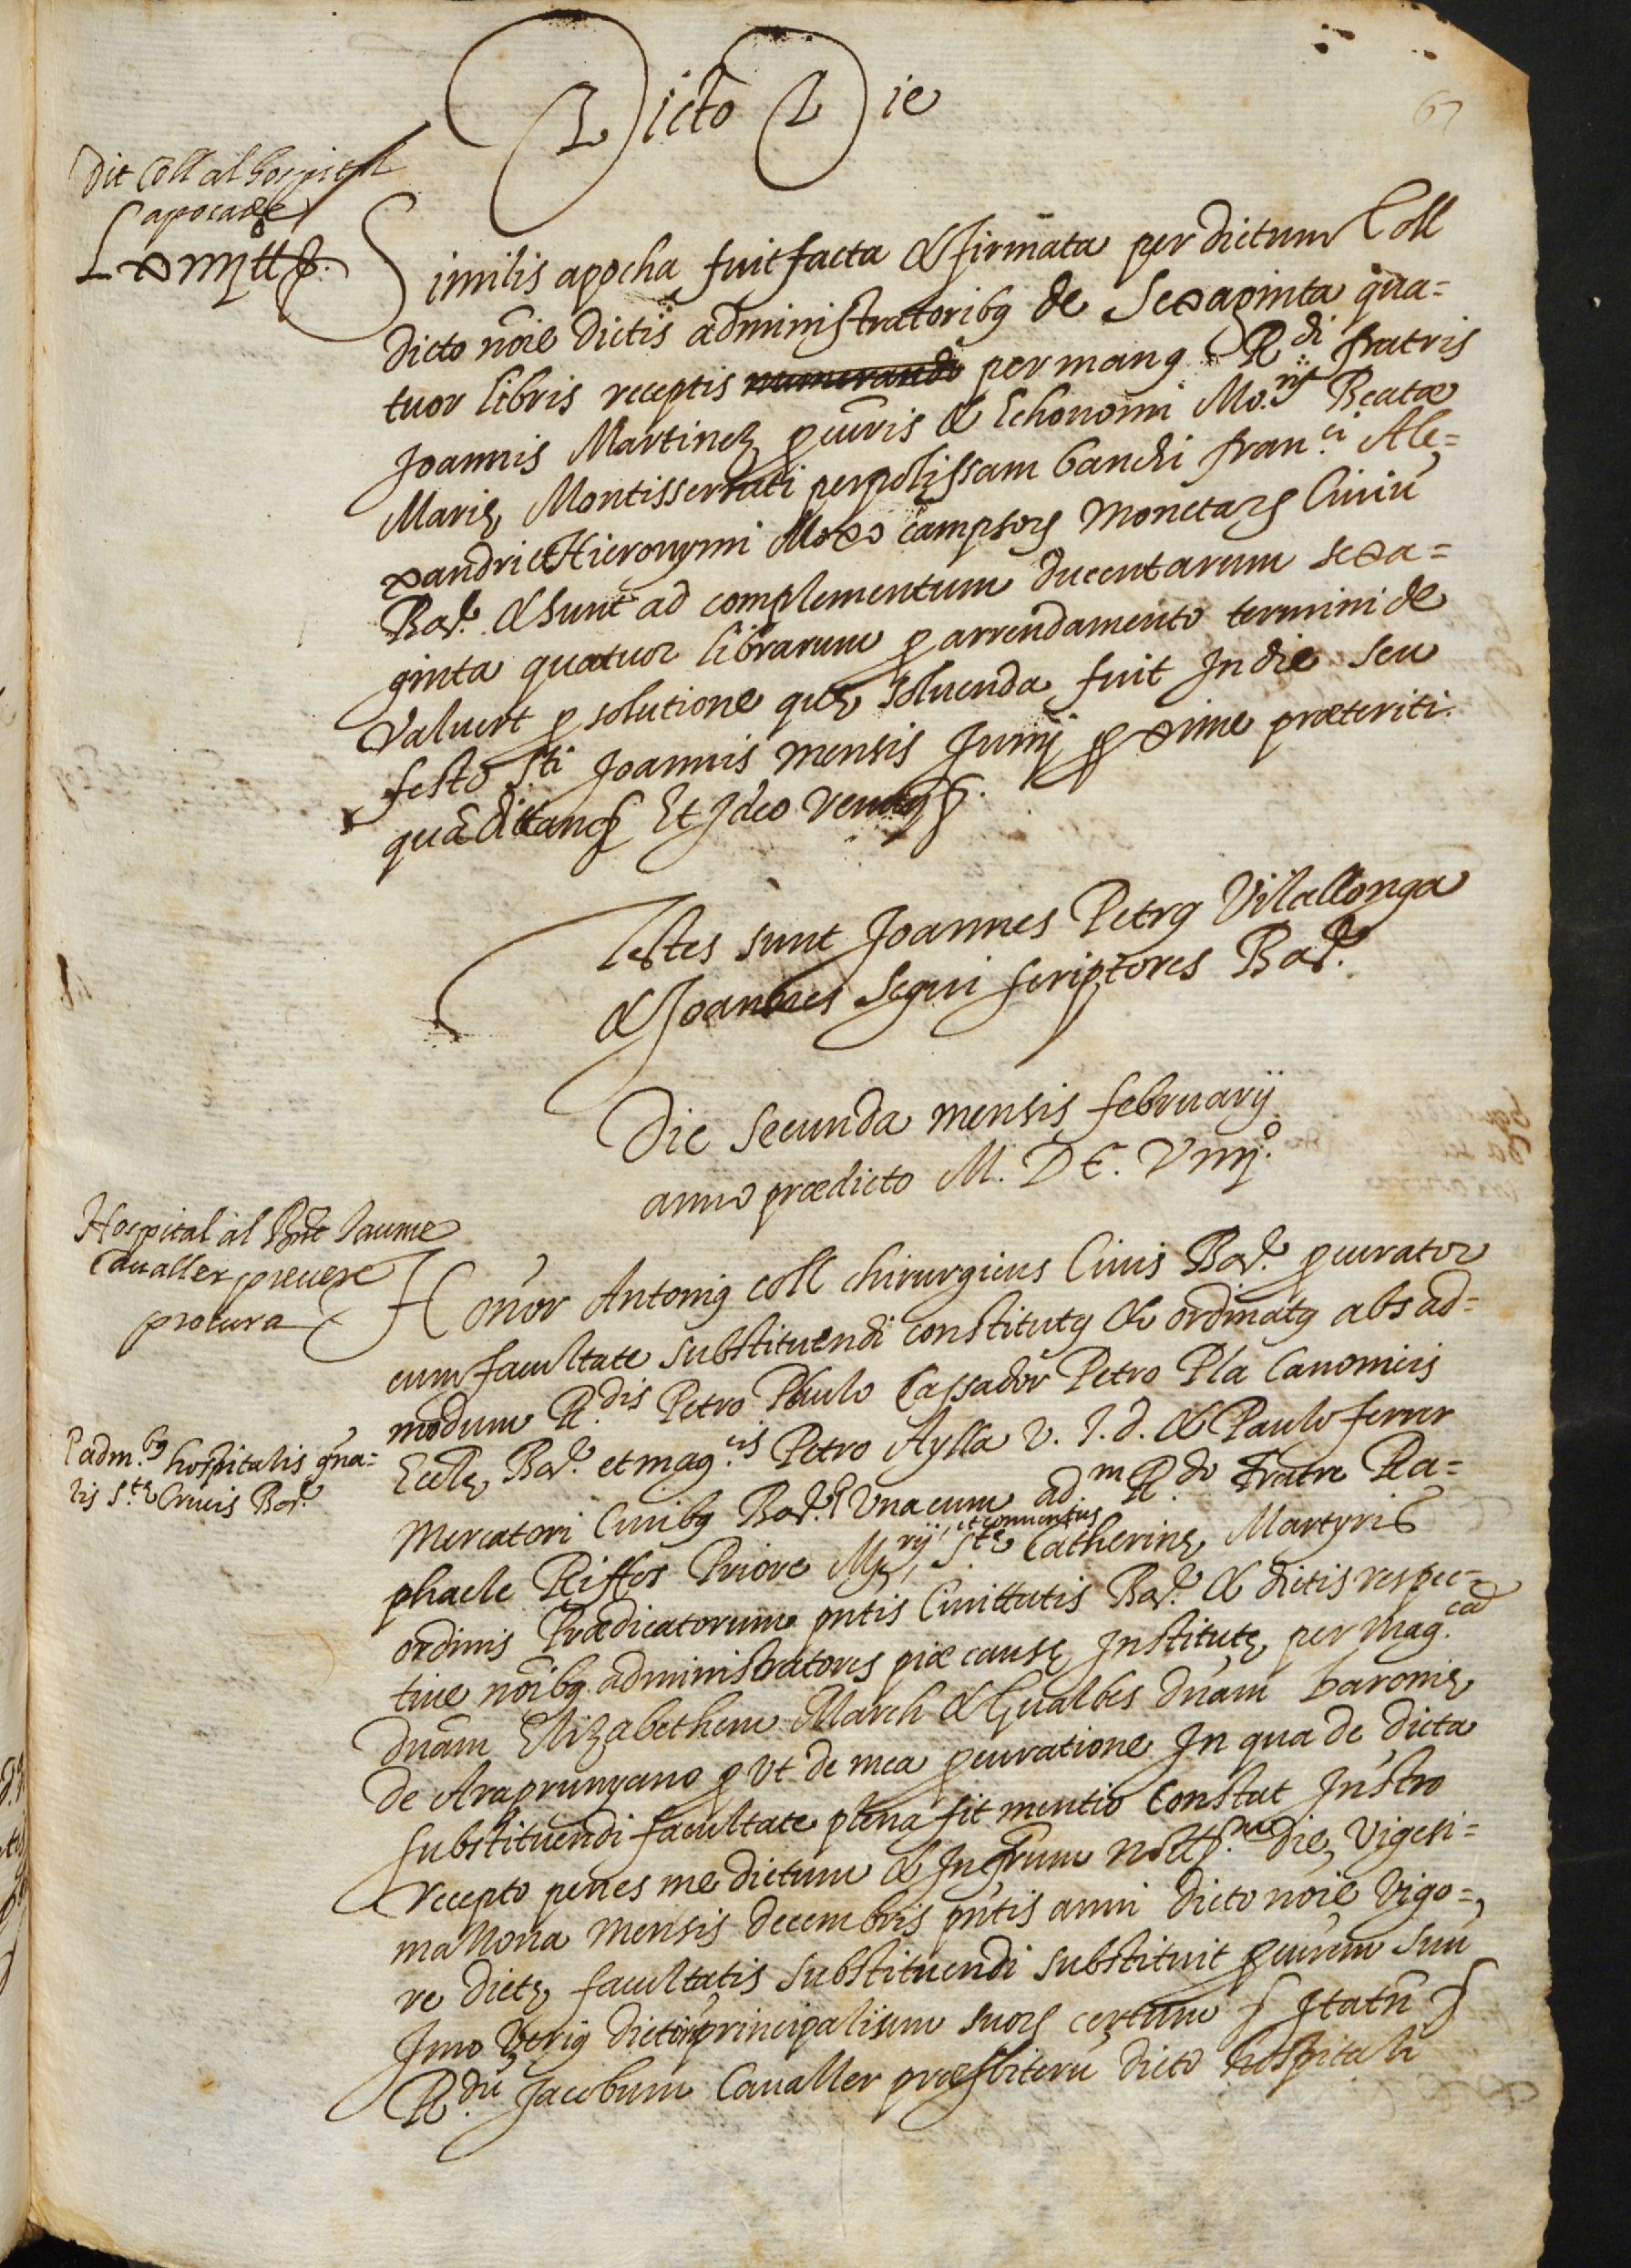 67
Dicto Die
Dit Coll al hospital
apocade
Lxiiij ll s.
Similis apocha fuit facta & firmata per dictum Coll
dicto nōie dictis administratoribꝰ de Sexaginta qua=
tuor libris receptis numerando per manꝰ R.di fratris
Joannis Martinez ꝓcuris & Echonomi Mo.rij Beatæ
Marię Montisserrati per polissam banchi fran.ci Ale=
xandri & Hieronymi Moxo campsoꝝ monetaꝝ Ciuiū
Bar. & sunt ad complementum ducentarum sexa=
ginta quatuor librarum ꝓ arrendamento termini de
Valuert ꝓ solutione quę soluenda fuit In die seu
festo S.ti Joannis mensis Junij ꝓxime præteriti.
Et Ideo
Testes sunt Joannes Petrꝰ Vilallonga
& Joannes Segui scriptores Bar.
Die Secunda mensis februarij
anno prædicto M. DC. Viiij.º
Hospital al Rnt Jaume
Caualler preuere
procura
Honor Antoniꝰ Coll chirurgicus Ciuis Bar. ꝓcurator
cum facultate substituendi constitutꝰ & ordinatꝰ abs ad=
modum R.dis Petro Paulo Cassador Petro Pla Canonicis
Eccłę Bar. et mag.cis Petro Aylla V. J. d. & Paulo ferrer
Mercatori Ciuibꝰ Bar. Una cum ad.m R.do Fratre Ra=
adm.bꝰ hospitalis gña=
lis S.tę Crucis Bar.
phaele Riffos Priore Mo.rij, et conuentus S.tę Catherinę Martyris
ordinis Prædicatorum pñtis Ciuittatis Bar. & dictis respec=
tiue nōibꝰ administratores piæ causę Institutę per Mag.cā
Dnām Elizabethem March & Gualbes Dnām baronię
de Araprunyano ꝓut de mea ꝓcuratione In qua de dicta
substituendi facultate plena fit mentio Constat Instro
recepto penes me dictum & Infrum die, Vigesi=
ma Nona mensis Decembris pñtis anni dicto nōie Vigo=
re dictę facultatis substituendi substituit ꝓcurem suū
Imo veriꝰ dictoꝝ principalium suoꝝ certum & Itatñ &
R.dū Jacobum Caualler præsbiterū dicto hospitali